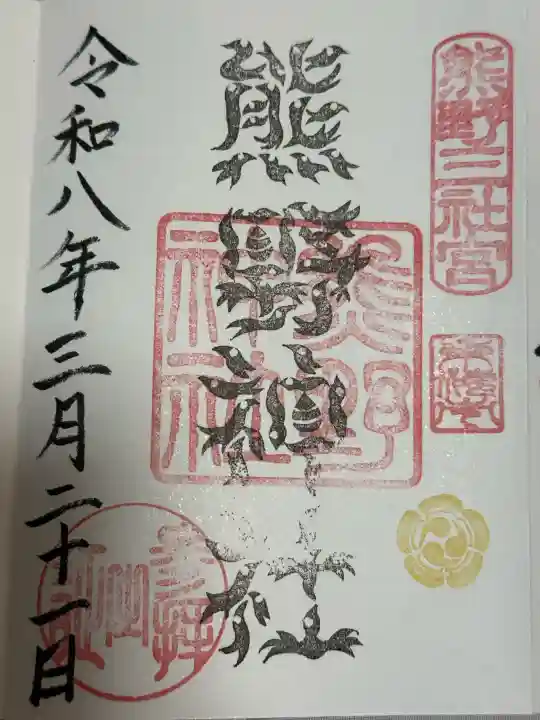 熊野三社宮
熊野神社
熊野
神社
令和八年三月二十一日